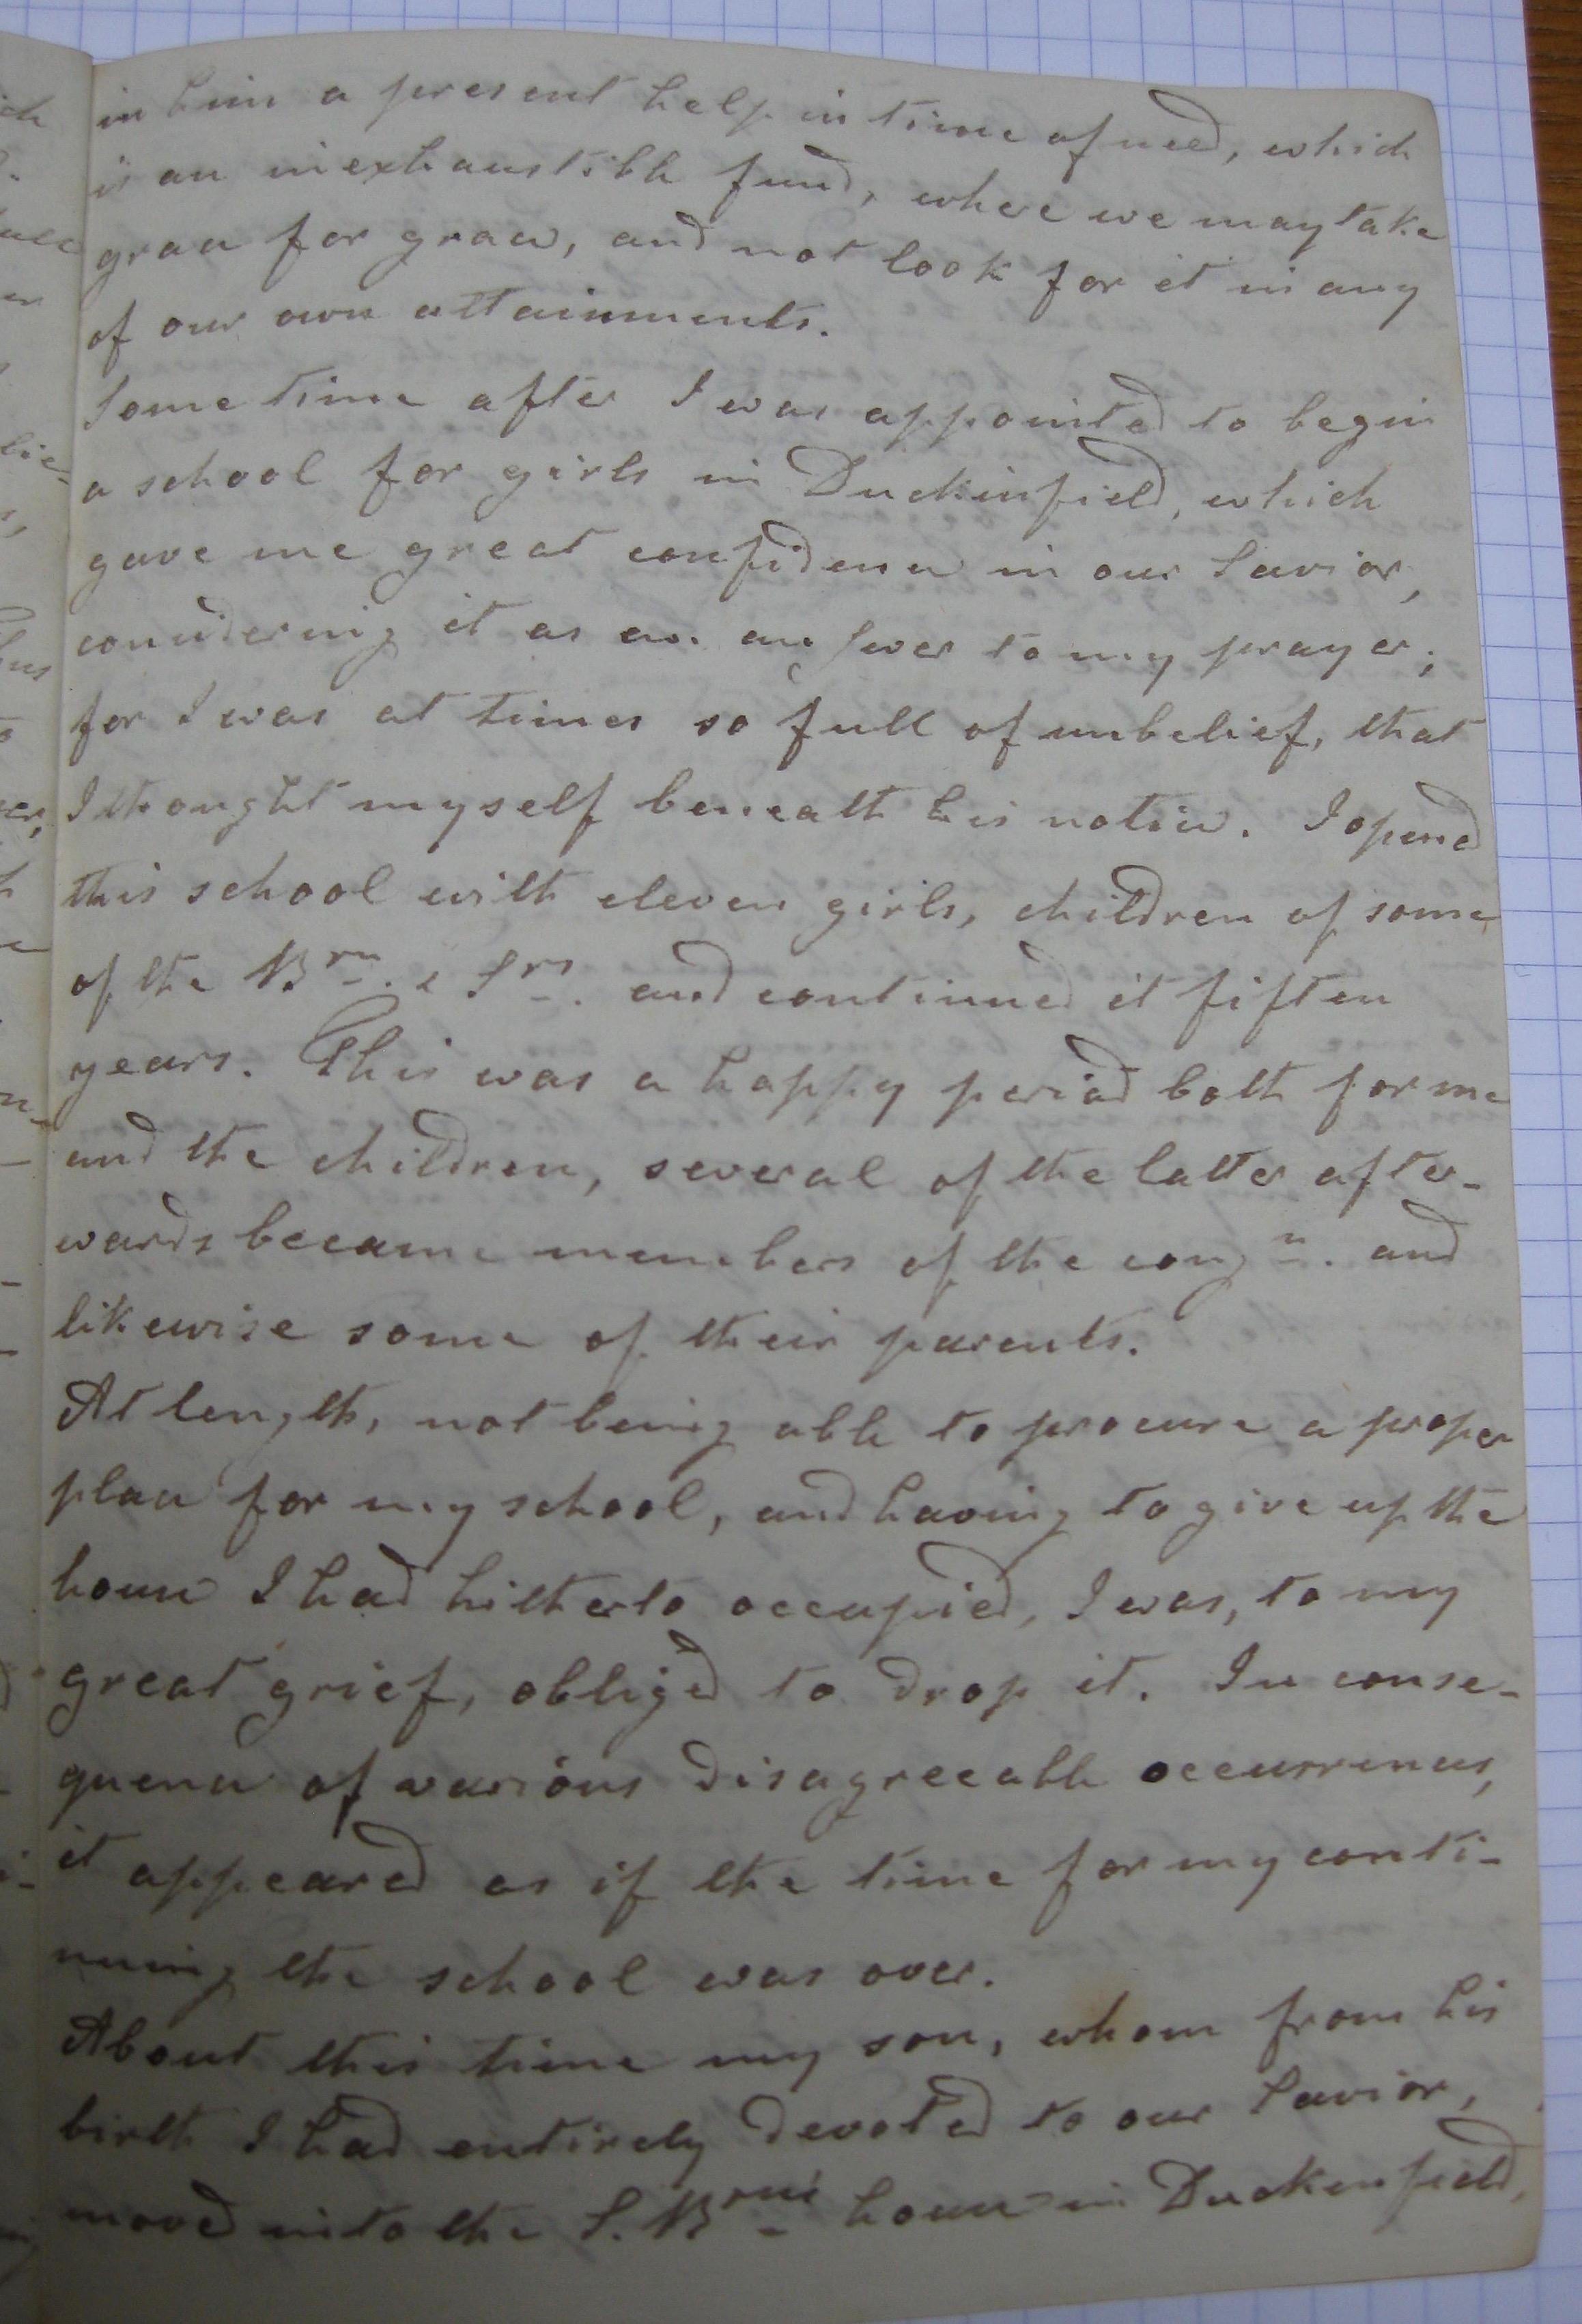 in him a present help in time of need, which
is an inexhaustible fund, where we may take
grace for grace, and not look for it in any
of our own attainments.
Some time after I was appointed to begin
a school for girls in Duckinfield, which
gave me great confidence in our Savior,
considering it as an answer to my prayer;
for I was at times so full of unbelief, that
I thought myself beneath his notice. I opend
this school with eleven girls, children of some
of the Brn. & Srs. and continued it fifteen
years. This was a happy period both for me
and the children, several of the latter after-
wards became members of the congn. and
likewise some of their parents.
At length, not being able to procure a proper
place for my school, and having to give up the
house I had hitherto occupied, I was, to my
great grief, obliged to drop it. In conse-
quence of various disagreeable occurrences,
it appeared as if the time for my conti-
nuing the school was over.
About this time my son, whom from his
birth I had entirely devoted to our Savior,
moved into the S. Brns house in Duckenfield,